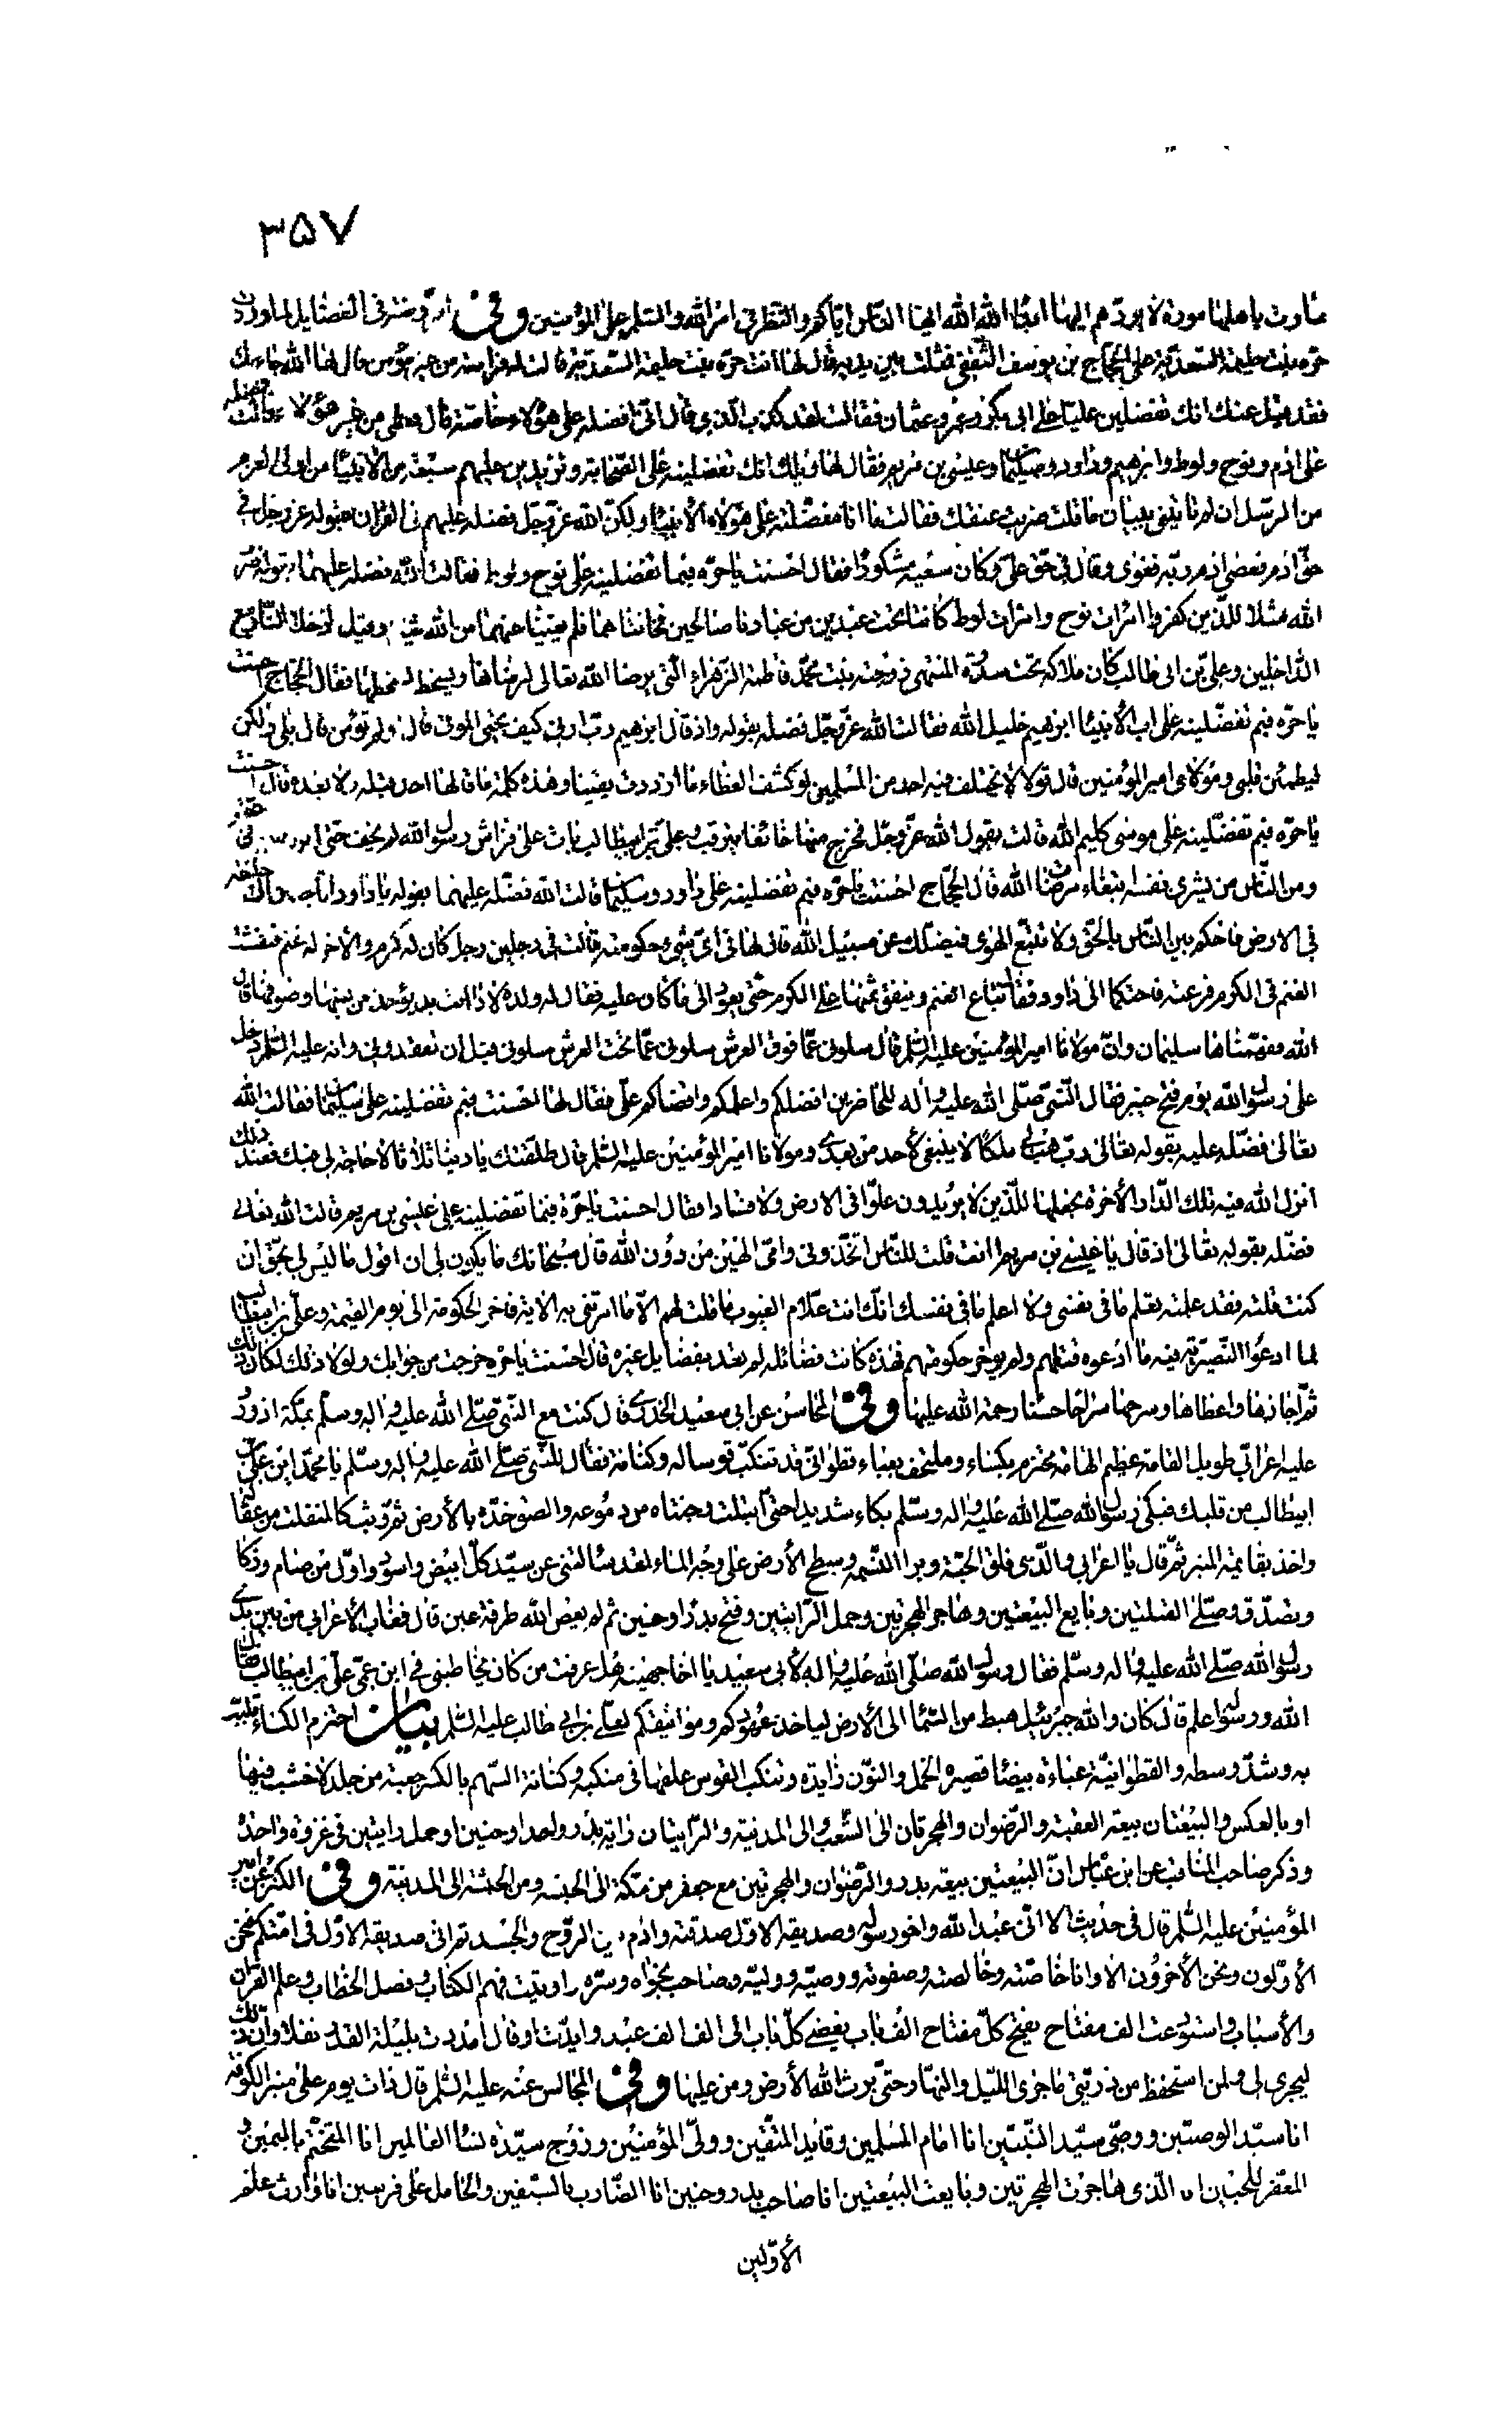 ٣٥٧
مارت باهلها مورة لا يردهم اليها ابدا الله الله ايها الناس اياكم والنظر في امر الله والسلم على المؤمنين وفي الفضايل لما وردت
حرّه بنت حليمة السعديّة على الحجّاج بن يوسف الثقفي فمثلت بين يديه قال لها انت حرّه بنت حليمة السعديّة قالت له فراسة من غير مؤمن قال لها الله جاء بك
فقد قيل عنك انك تفضلين عليّا على ابي بكر وعمر وعثمان فقالت لقد كذب الّذي قال انّي افضله على هؤلاء خاصّة قال وعلى من غير هؤلاء قالت افضله
على ادم ونوح ولوط وابرهيم وداود وسليمان وعيسى بن مريم فقال لها ويلك انك تفضلينه على الصّحابة وتزيدين عليهم سبعة من الانبياء من اولى العزم
من الرسل ان لم تاتيني ببيان ما قلت ضربت عنقك فقالت ما انا مفضّلته على هؤلاء الأنبياء ولكنّ الله عزّ وجلّ فضله عليهم في القران بقوله عزّ وجل في
حقّ ادم فعصى ادم ربّه فغوى وقال في حقّ عليّ وكان سعيه مشكورًا فقال احسنت يا حرّه فبما تفضلينه على نوح ولوط فقالت الله فضله عليهما بقوله ضرب
الله مثلا للذين كفروا امرات نوح وامرات لوط كانتا تحت عبدين من عبادنا صالحين فخانتاهما فلم يغنيا عنهما من الله شيئا وقيل ادخلا النار مع
الداخلين وعليّ بن ابي طالب كان ملاكه تحت سدرة المنتهى زوجته بنت محمّد فاطمة الزهراء الّتي يرضا الله تعالى لرضاها ويسخط لسخطها فقال الحجّاج احسنت
يا حرّه فبم تفضّلينه على اب الأنبياء ابرهيم خليل الله فقالت الله عزّ وجلّ فضله بقوله واذ قال ابرهيم ربّ ارني كيف تحيي الموتى قال اولم تؤمن قال بلى ولكن
ليطمئن قلبي ومولاي امير المؤمنين قال قولا لا يختلف فيه احد من المسلمين لو كشف الغطاء ما ازددت يقينا وهذه كلمة ما قالها احد قبله ولا بعده قال احسنت
يا حرّه فبم تفضّلينه على موسى كليم الله قالت بقول الله عزّ وجلّ فخرج منها خائفا يترقب وعليّ بن ابيطالب بات على فراش رسول الله لم يخف حتى انزل في حقه
ومن الناس من يشرى نفسه ابتغاء مرضات الله قال الحجّاج احسنت يا حرّه فبم تفضلينه على داود وسليمان قالت الله فضّله عليهما بقوله يا داود انا جعلناك خليفة
في الارض فاحكم بين الناس بالحقّ ولا تتبّع الهوى فيضلّك عن سبيل الله قال لها في ايّ شيء حكومته قالت في رجلين رجل كان له كرم والأخر له غنم فنفشت
الغنم في الكرم فرعته فاحتكما الى داود فقال تباع الغنم وينفق ثمنها على الكرم حتى يعود الى ما كان عليه فقال له ولده لا يا ابت بل يؤخذ من لبنها وصوفها قال
الله ففهّمناها سليمان وانّ مولانا امير المؤمنين عليه السّلم قال سلوني عمّا فوق العرش سلوني عمّا تحت العرش سلوني قبل ان تفقدوني وانه عليه السّلم دخل
على رسول الله يوم فتح خيبر فقال النّبيّ صلّى الله عليه واله للحاضرين افضلكم واعلمكم واقضاكم عليّ فقال لها احسنت فبم تفضلينه على سليمان فقالت الله
تعالى فضّله عليه بقوله تعالى ربّ هب لي ملكًا لا ينبغي لأحد من بعدي ومولانا امير المؤمنين عليه السّلم قال طلّقتك يا دنيا ثلاثا لا حاجة لي فيك فعند ذلك
انزل الله فيه تلك الدّار الأخرة نجعلها للّذين لا يريدون علوّا في الارض ولا فسادا فقال احسنت يا حرّة فبما تفضلينه على عيسى بن مريم قالت الله تعالى
فضّله بقوله تعالى اذ قال يا عيسى بن مريم أانت قلت للنّاس اتّخذوني وامّي الهين من دون الله قال سبحانك ما يكون لي ان اقول ما ليس لي بحقّ ان
كنت قلته فقد علمته تعلم ما في نفسي ولا اعلم ما في نفسك انّك انت علّام الغيوب ما قلت لهم الّا ما امرتني به الاية فاخر الحكومة الى يوم القيمة وعليّ بن ابيطالب
لما ادعوا النّصيريّة فيه ما ادعوه قتلهم ولم يوخر حكومتهم فهذه كانت فضائله لم تعد بفضايل غيره قال احسنت يا حرّه خرجت من جوابك ولولا ذلك لكان ذلك
ثمّ اجازها واعطاها وسرحها سراحا حسنا رحمة الله عليها وفي المحاسن عن ابي سعيد الخدري قال كنت مع النّبيّ صلّى الله عليه واله وسلّم بمكّة اذ ورد
عليه اعرابيّ طويل القامة عظيم الهامة محتزم بكساء وملتحف بعباء قطوانيّ قد تنكّب قوسا له وكنانة فقال للنّبيّ صلّى الله عليه واله وسلّم يا محمّد اين عليّ بن
ابيطالب من قلبك فبكى رسول الله صلّى الله عليه واله وسلّم بكاء شديدا حتى ابتلت وجنتاه من دموعه والصق خدّه بالأرض ثمّ وثب كالمنفلت من عقاله
واخذ بقائمة المنبر ثمّ قال يا اعرابي والّذي فلق الحبّة وبرا النّسمة وسطح الأرض على وجه الماء لقد سالتني عن سيّد كلّ ابيض واسود واوّل من صام وزكا
وتصدّق وصلّى القبلتين وبايع البيعتين وهاجر الهجرتين وحمل الرّايتين وفتح بدرًا وحنين ثم لم يعص الله طرفة عين قال فغاب الأعرابي من بين يدي
رسول الله صلّى الله عليه واله وسلّم فقال رسول الله صلّى الله عليه واله لأبي سعيد يا اخا جهينة هل عرفت من كان يخاطبني في ابن عمّي عليّ بن ابيطالب فقال
الله ورسوله اعلم قال كان والله جبرئيل هبط من السّماء الى الأرض لياخذ عهودكم ومواثيقكم لعليّ بن ابي طالب عليه السّلم بيان احتزم الكساء تلبّب
به وشدّ وسطه والقطوانيّة عباءة بيضاء قصيرة الخمل والنّون زايدة وتنكّب القوس علقها في منكبه وكنانة السّهم بالكسر جعبة من جلد لا خشب فيها
او بالعكس والبيعتان بيعة العقبة والرّضوان والهجرتان الى الشّعب والى المدينة والرّايتان راية بدر واحد او حنين او حمل رايتين في غزوة واحدة
وذكر صاحب المناقب عن ابن عبّاس انّ البيعتين بيعة بدر والرّضوان والهجرتين مع جعفر من مكّة الى الحبشة ومن الحبشة الى المدينة وفي الكنز عن امير
المؤمنين عليه السّلم قال في حديث الا انّي عبد الله واخو رسوله وصديقه الاوّل صدقته وادم بين الرّوح والجسد ثم انّي صديقه الاوّل في امّتكم فنحن
الأوّلون ونحن الأخرون الا وانا خاصّته وخالصته وصفوته ووصيّه ووليّه وصاحب نجواه وسرّه اوتيت فهم الكتاب وفصل الخطاب وعلم القران
والأسباب واستودعت الف مفتاح يفتح كلّ مفتاح الف باب يفضي كلّ باب الى الف الف عهد وايّدت او قال امددت بليلة القدر نفلا وانّ ذلك
ليجري لي ولمن استحفظ من ذرّيّتي ما جرى اللّيل والنّهار حتى يرث الله الأرض ومن عليها وفي المجالس عنه عليه السّلم قال ذات يوم على منبر الكوفة
انا سيّد الوصيّين ووصيّ سيّد النّبيّين انا امام المسلمين وقايد المتّقين ووليّ المؤمنين وزوج سيّدة نساء العالمين انا المتختّم باليمين و
المعفّر للجبين انا الّذي هاجرت الهجرتين وبايعت البيعتين انا صاحب بدر وحنين انا الضّارب بالسّيفين والحامل على فرسين انا وارث علم
الأوّلين